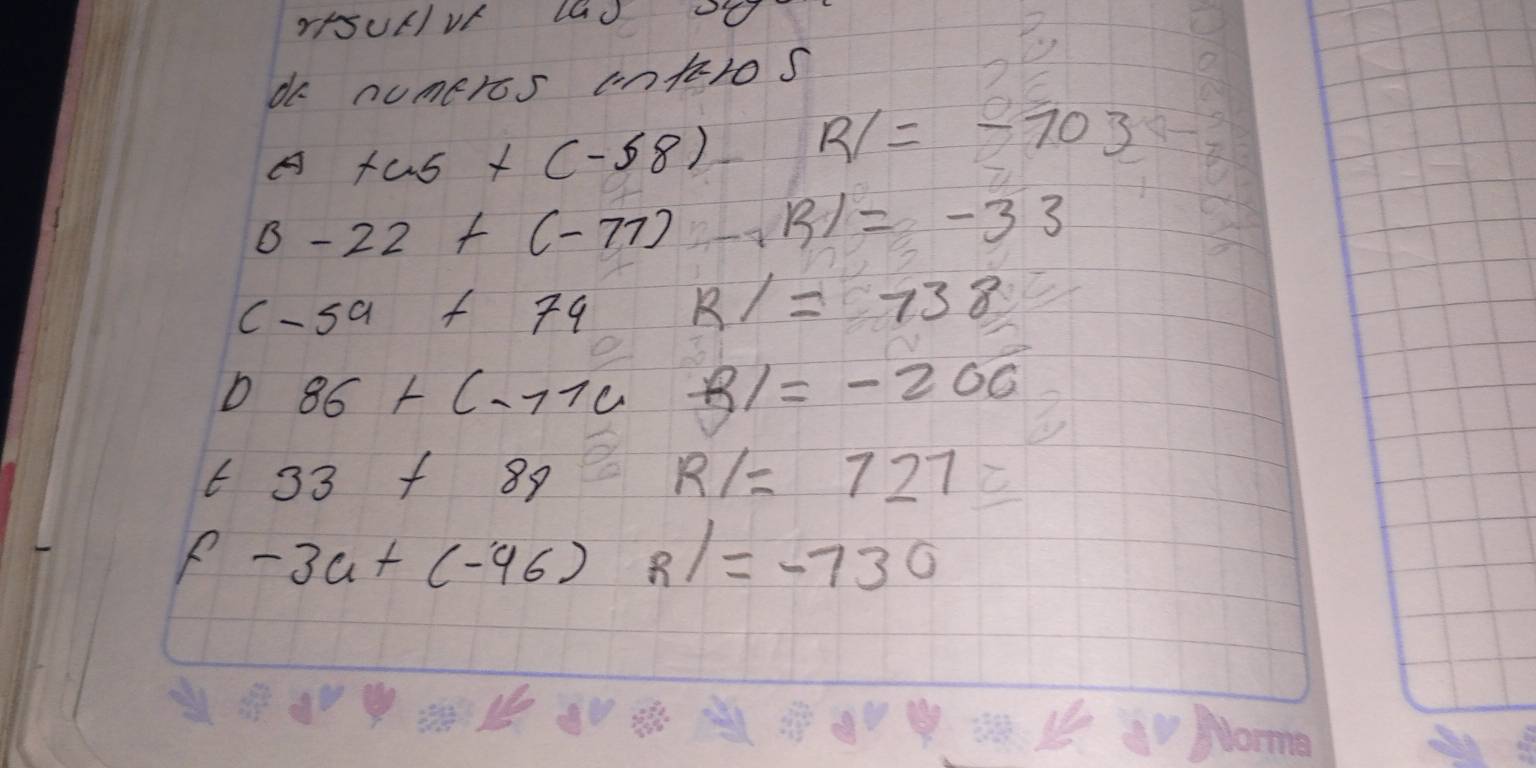 resuelve las
de numeros enteros
A +45 + (-58) R/= -103
B -22 + (-11) R/= -33
C -59 + 79 R/= 138
D 86 + (-114 R/= -200
E 33 + 89 R/= 121
F -34 + (-96) R/= -130
Norma